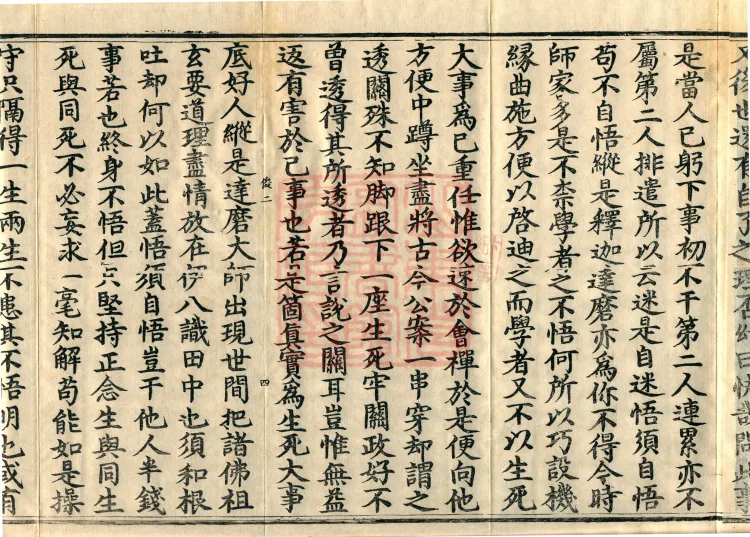 是當人已躬下事初不干第二人連累亦不
屬第二人排遣所以云迷是自迷悟須自悟
苟不自悟縱是釋迦達磨亦爲你不得今時
師家多是不柰學者之不悟何所以巧設機
緣曲施方便以啓迪之而學者又不以生死
大事爲已重任惟欲速於會禪於是便向他
方便中蹲坐盡將古今公案一串穿却謂之
透關殊不知脚跟下一座生死牢關政好不
曾透得其所透者乃言說之關耳豈惟無益
返有害於己事也若是箇眞實爲生死大事
俊二
四
底好人縱是達磨大師出現世間把諸佛祖
玄要道理盡情放在伊八識田中也須和根
吐却何以如此蓋悟須自悟豈干他人半錢
事若也終身不悟但只堅持正念生與同生
死與同死不必妄求一毫知解苟能如是操
守只隔得一生兩生不患其不悟明也或有